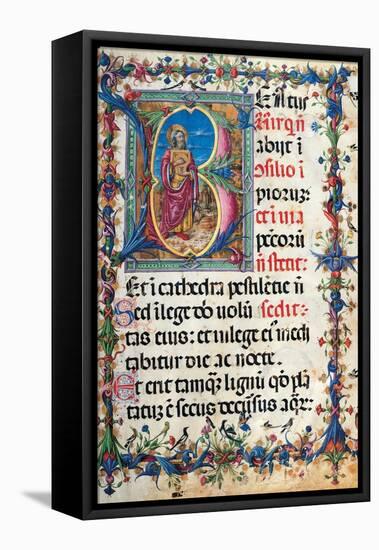 Eatus
Uir qn
abijt i
ɔsilio i
piorum:
et i uia
peccorū
n̄ stetit:
Et i cathedra pestilētie n̄
Sed i lege dō uolū sedit:
tas eius: et i lege eī medi
tabitur die ac nocte.
Et erit tamq̄ lignū qd plā
tatū ē secus decursus aqr: